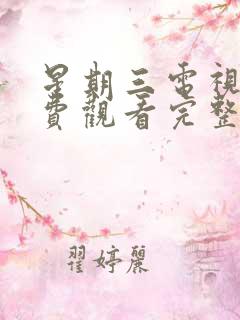 星期三電視
費觀看完整
翟婷麗